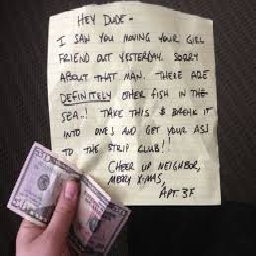 HEY DUDE -
I SAW YOU MOVING YOUR GIRL
FRIEND OUT YESTERDAY. SORRY
ABOUT THAT MAN. THERE ARE
DEFINITELY OTHER FISH IN THE
SEA..! TAKE THIS $ BREAK IT
INTO ONES AND GET YOUR ASS
TO THE STRIP CLUB!!
CHEER UP NEIGHBOR,
MERRY X-MAS,
APT. 3F